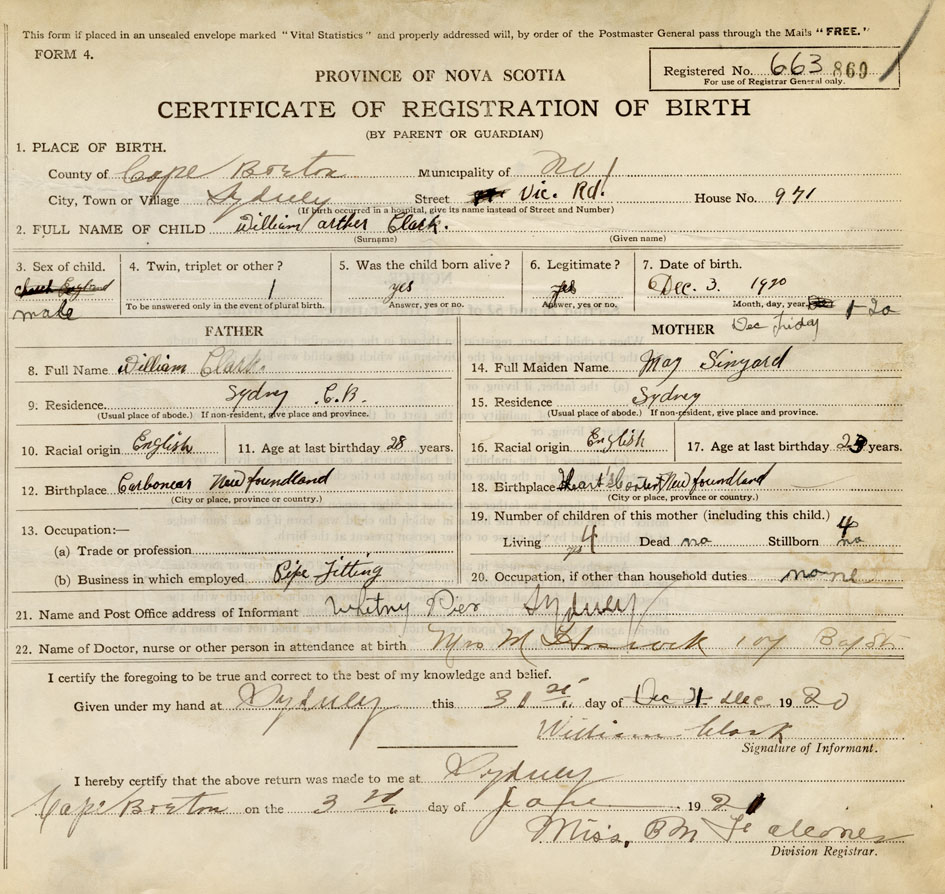 This form if placed in an unsealed envelope marked "Vital Statistics" and properly addressed will, by order of the Postmaster General pass through the Mails "FREE."
FORM 4.
Registered No. 663 869
For use of Registrar General only.
PROVINCE OF NOVA SCOTIA
CERTIFICATE OF REGISTRATION OF BIRTH
(BY PARENT OR GUARDIAN)
1. PLACE OF BIRTH.
County of Cape Breton Municipality of No 1
City, Town or Village Sydney Street Vic. Rd. House No. 971
(If birth occurred in a hospital, give its name instead of Street and Number)
2. FULL NAME OF CHILD William arther Clark.
(Surname) (Given name)
3. Sex of child. 4. Twin, triplet or other? 5. Was the child born alive? 6. Legitimate? 7. Date of birth.
male 1 yes yes Dec. 3. 1920
To be answered only in the event of plural birth. Answer, yes or no. Answer, yes or no. Month, day, year. 1-20
FATHER MOTHER Dec Friday
8. Full Name William Clark 14. Full Maiden Name May Sinyard
9. Residence Sydney C.B. 15. Residence Sydney
(Usual place of abode.) If non-resident, give place and province. (Usual place of abode.) If non-resident, give place and province.
10. Racial origin English 11. Age at last birthday 28 years. 16. Racial origin English 17. Age at last birthday 23 years.
12. Birthplace Carbonear Newfoundland 18. Birthplace Heart's Content Newfoundland
(City or place, province or country.) (City or place, province or country.)
13. Occupation:— 19. Number of children of this mother (including this child.) 4
(a) Trade or profession Living 4 Dead no Stillborn no
(b) Business in which employed Pipe Fitting 20. Occupation, if other than household duties none
21. Name and Post Office address of Informant Whitny Pier Sydney
22. Name of Doctor, nurse or other person in attendance at birth Mrs M 107 Bay St.
I certify the foregoing to be true and correct to the best of my knowledge and belief.
Given under my hand at Sydney this 31 st day of Dec 19 20
William Clark
Signature of Informant.
I hereby certify that the above return was made to me at Sydney
Cape Breton on the 3 day of Jane 19 21
Miss. B M
Division Registrar.